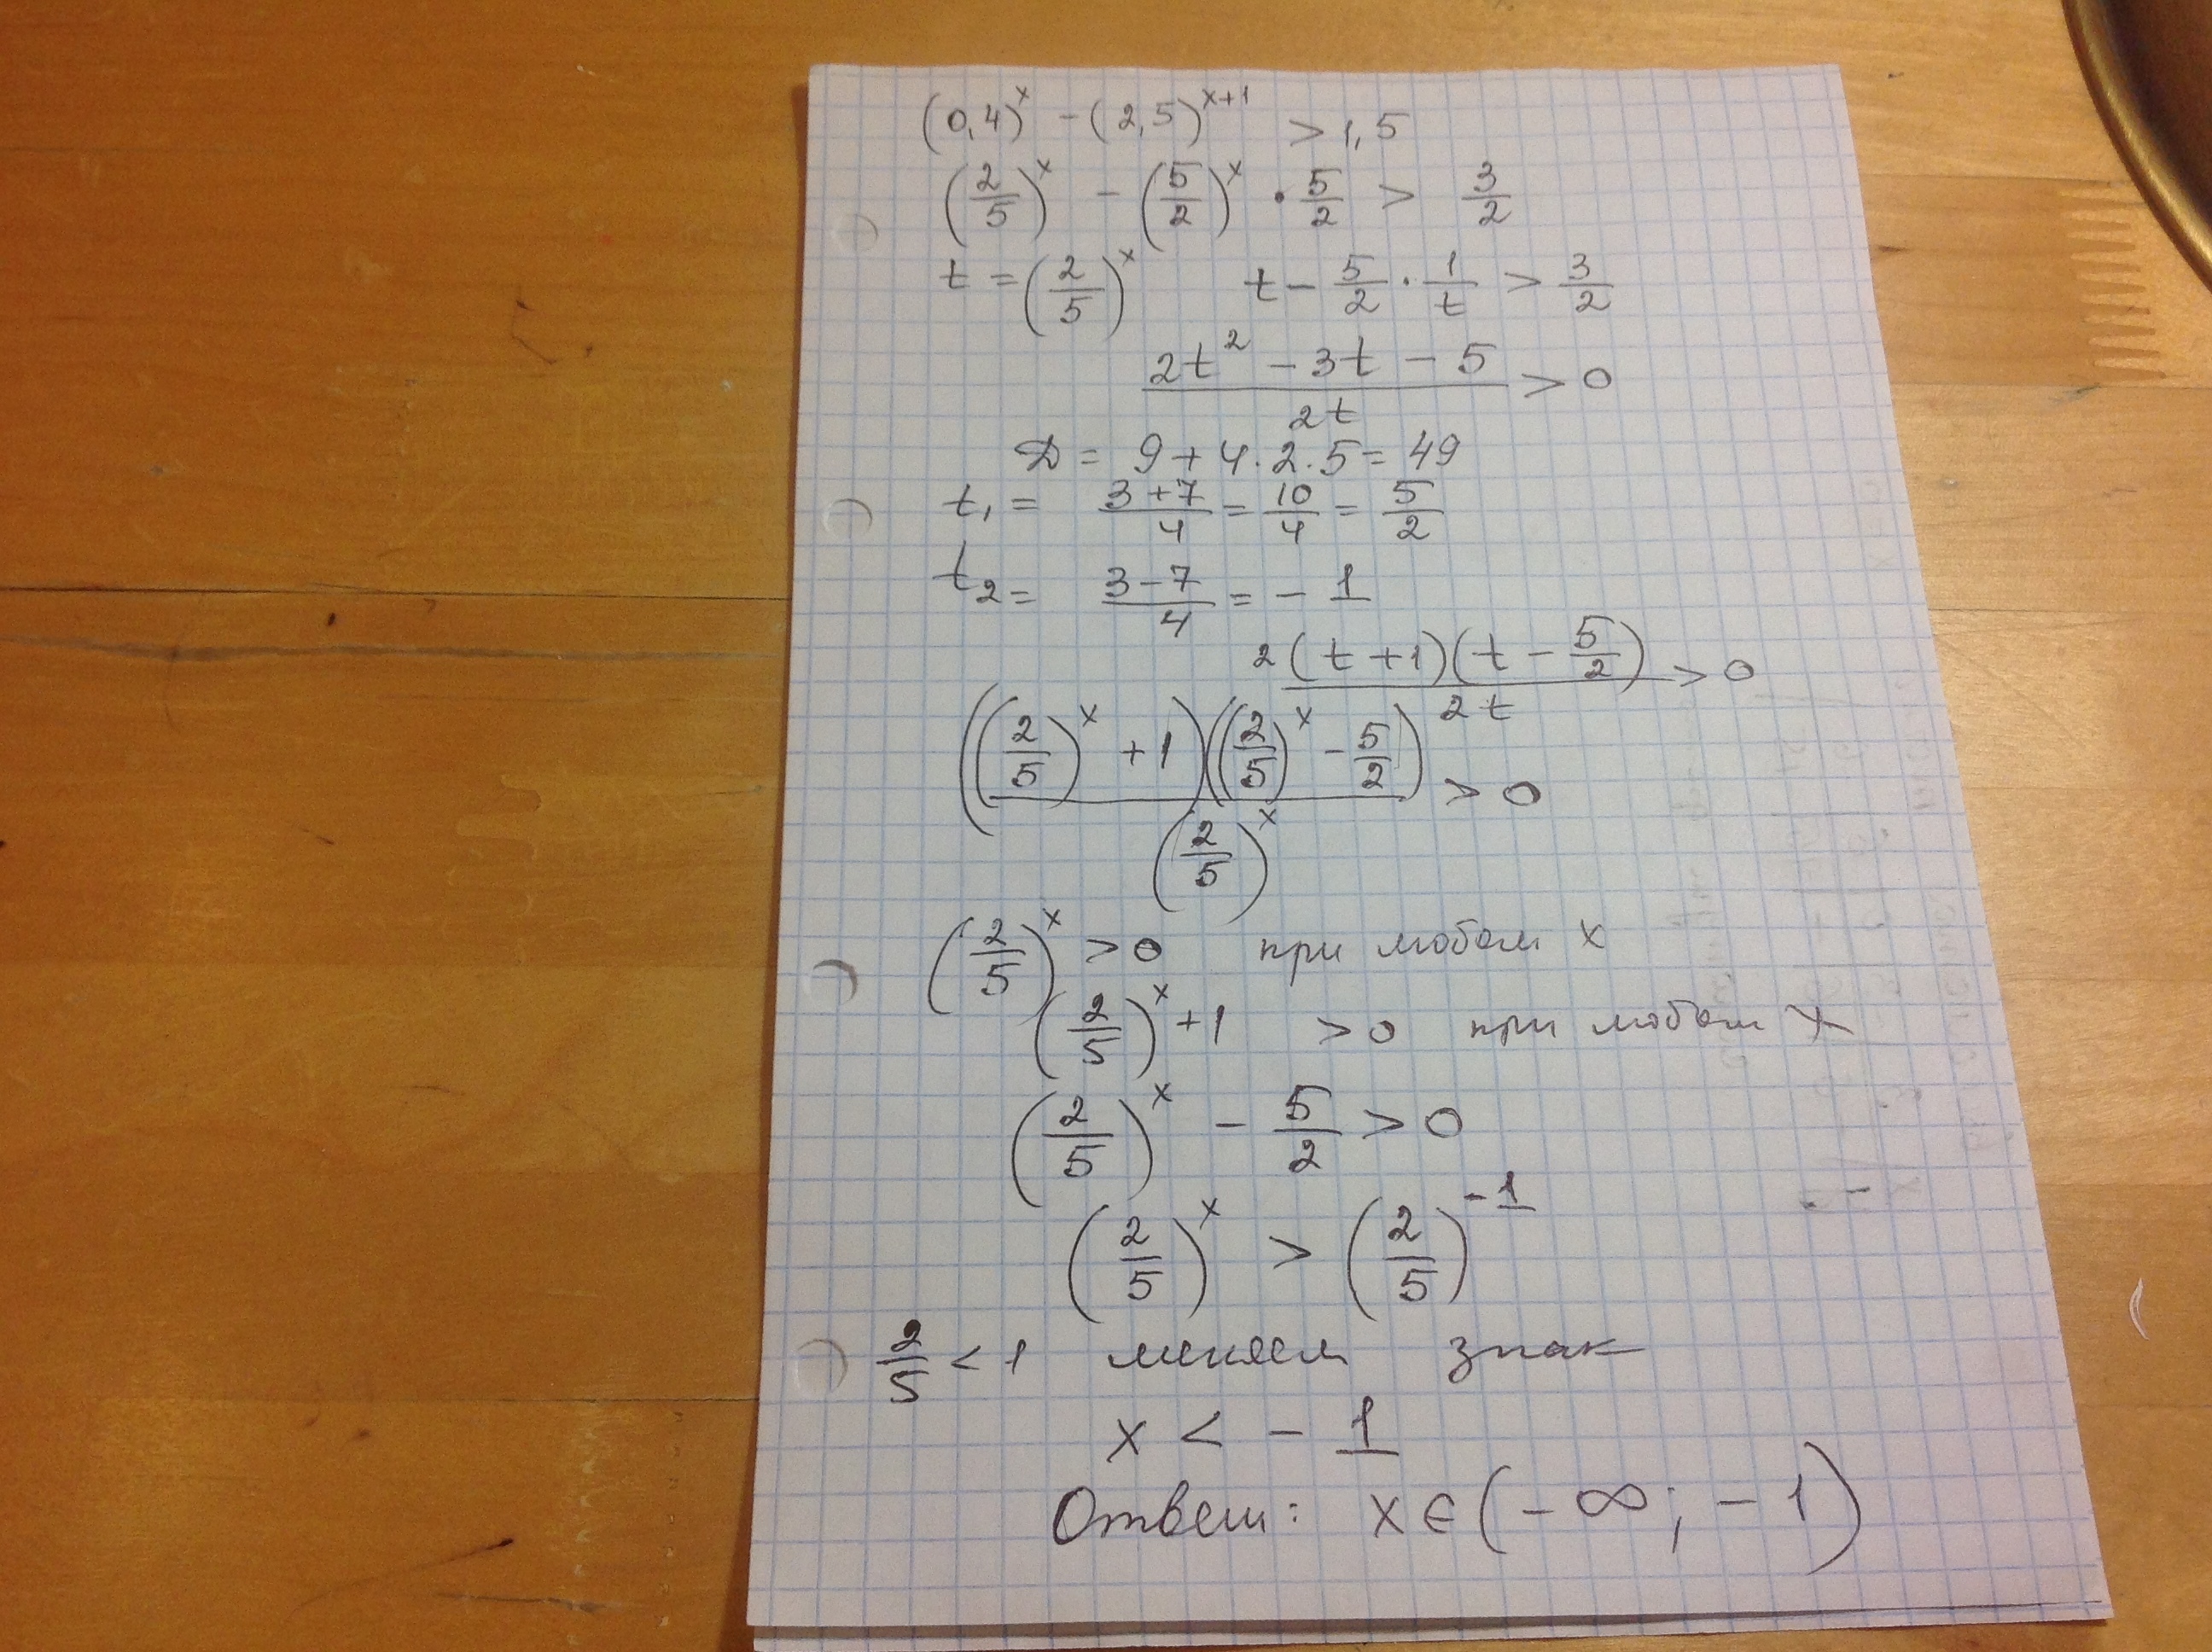 (0,4)^x - (2,5)^{x+1} > 1,5
(2/5)^x - (5/2)^x · 5/2 > 3/2
t = (2/5)^x t - 5/2 · 1/t > 3/2
(2t^2 - 3t - 5)/(2t) > 0
D = 9 + 4·2·5 = 49
t_1 = (3+7)/4 = 10/4 = 5/2
t_2 = (3-7)/4 = - 1
2(t+1)(t - 5/2)/(2t) > 0
((2/5)^x + 1)((2/5)^x - 5/2)/(2/5)^x > 0
(2/5)^x > 0 при любом x
(2/5)^x + 1 > 0 при любом x
(2/5)^x - 5/2 > 0
(2/5)^x > (2/5)^{-1}
2/5 < 1 меняем знак
x < - 1
Ответ: x ∈ (-∞; -1)